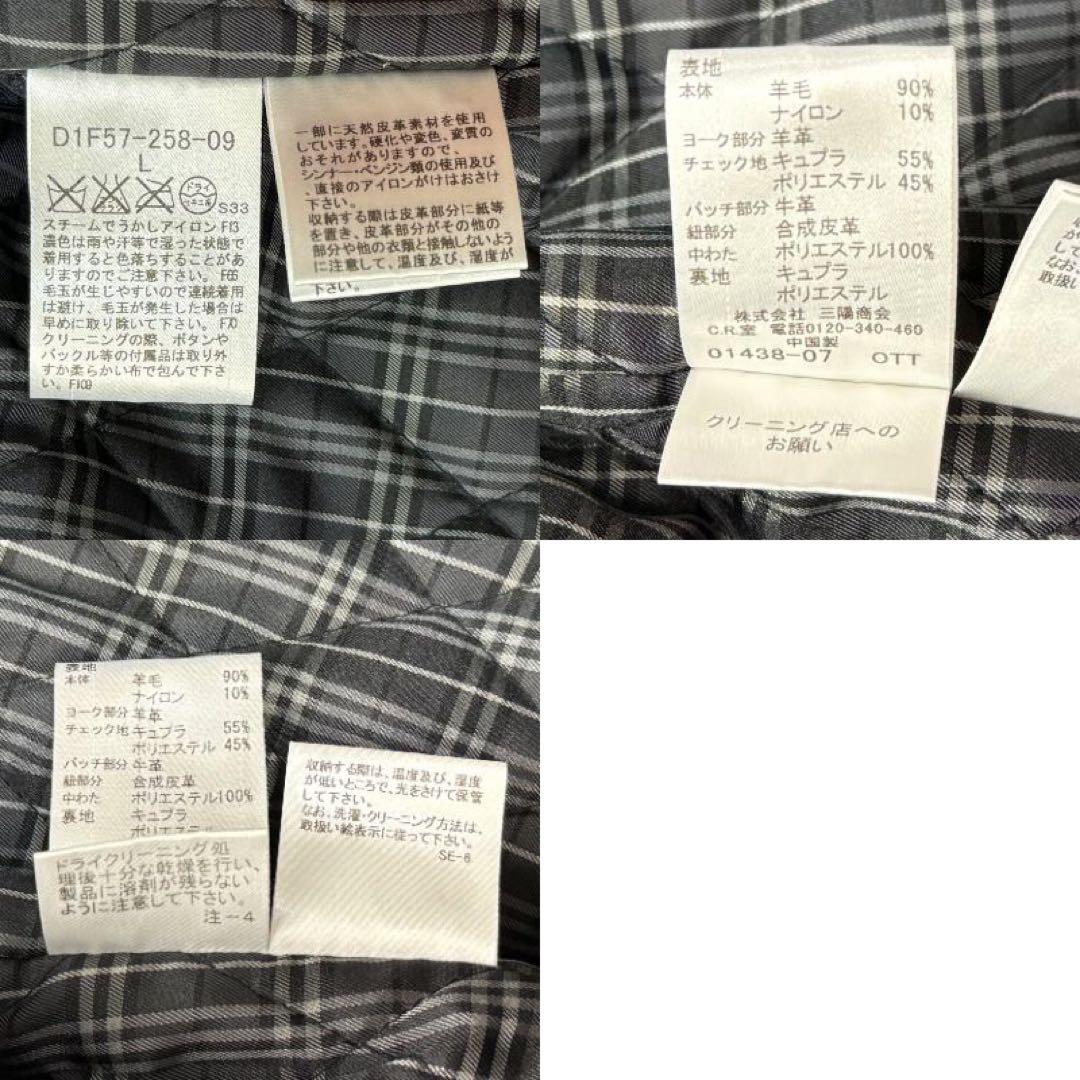 D1F57-258-09
L
ドライ
セキユ系
S33
スチームでうかしアイロン F13
濃色は雨や汗等で湿った状態で
着用すると色落ちすることがあ
りますのでご注意下さい。F66
毛玉が生じやすいので連続着用
は避け、毛玉が発生した場合は
早めに取り除いて下さい。F70
クリーニングの際、ボタンや
バックル等の付属品は取り外
すか柔らかい布で包んで下さ
い。F109
一部に天然皮革素材を使用
しています。硬化や変色、変質の
おそれがありますので、
シンナー・ベンジン類の使用及び
直接のアイロンがけはおさけ
下さい。
収納する際は皮革部分に紙等
を置き、皮革部分がその他の
部分や他の衣類と接触しないよう
に注意して、温度及び、湿度が
下さい。
表地
本体 羊毛 90%
ナイロン 10%
ヨーク部分 羊革
チェック地 キュプラ 55%
ポリエステル 45%
パッチ部分 牛革
紐部分 合成皮革
中わた ポリエステル100%
裏地 キュプラ
ポリエステル
株式会社 三陽商会
C.R.室 電話0120-340-460
中国製
01438-07 OTT
クリーニング店への
お願い
表地
本体 羊毛 90%
ナイロン 10%
ヨーク部分 羊革
チェック地 キュプラ 55%
ポリエステル 45%
パッチ部分 牛革
紐部分 合成皮革
中わた ポリエステル100%
裏地 キュプラ
ポリエステル
ドライクリーニング処
理後十分な乾燥を行い、
製品に溶剤が残らない
ように注意して下さい。
注-4
収納する際は、温度及び、湿度
が低いところで、光をさけて保管
して下さい。
なお、洗濯・クリーニング方法は、
取扱い絵表示に従って下さい。
SE-6